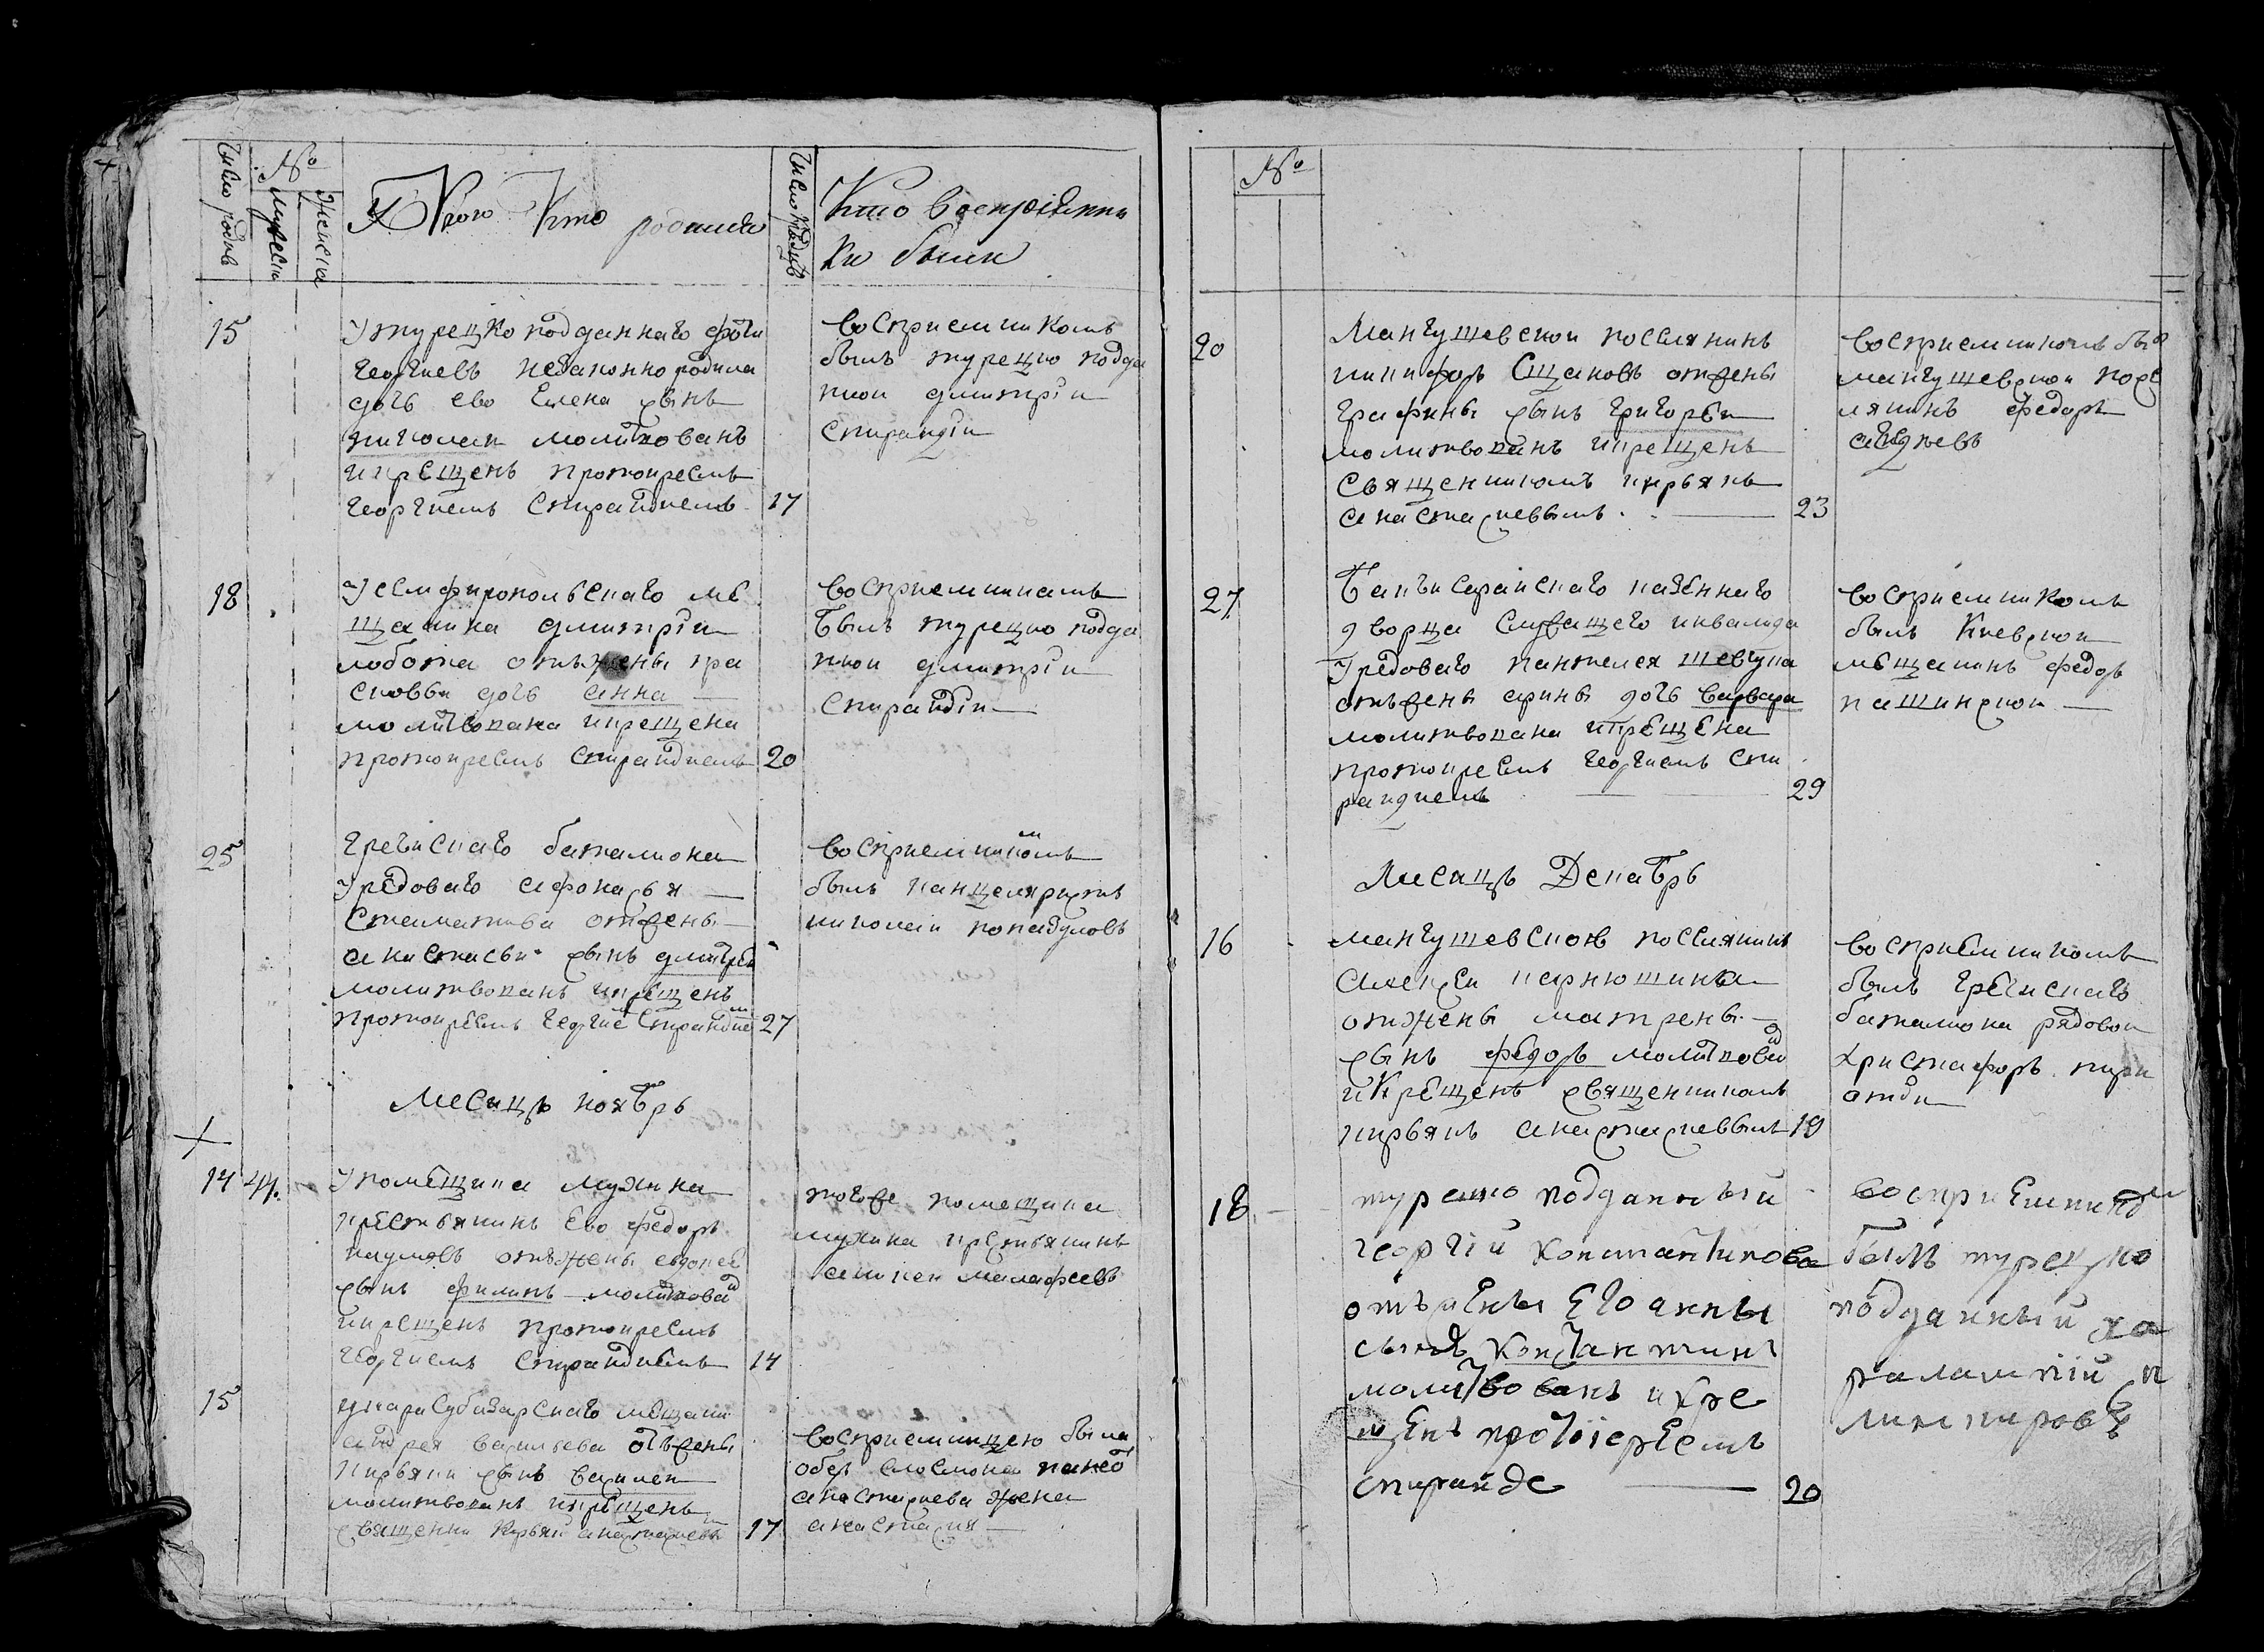 Число родив
№
мужеска
женска
У Кого Кто родился
Число крещ
Кто восприемни
ки были
15
У турецко подданнаго фоти
Георгиевъ незаконно родила
дочь ево Елена сынъ
николаи молитвованъ
икрещенъ протоиреемъ
Георгиемъ Спирандиемъ 17
восприемникомъ
былъ турецко подда
нои димитрiи
Спирандiи
18
У семфиропольскаго ме
щанина димитрiи
лобота отъ жены пра
сковви дочь анна
молитвована икрещена
протоиреемъ Спирандиемъ 20
восприемникамъ
былъ турецко подда
нои димитрiи
Спирандiи
25
Греческаго баталиона
Урядоваго афонасья
Стаматива отжены
анастасьи сынъ димитреи
молитвованъ икрещенъ
протоиреемъ Георгием Спирандием 27
восприемникомъ
былъ канцеляристъ
николаи попандуловъ
Месяцъ ноябрь
14 44.
У помещика мухина
крестьянинъ Ево федоръ
наумовъ отъ жены евдокеи
сынъ филипъ молитвован
икрещенъ протоиреемъ
Георгиемъ Спирандиемъ 14
тогоже помещика
мухина крестьянинъ
алексеи малафеевъ
15
укарасубазарскаго мещани
андрея васильева отъжены
кирьяки сынъ василеи
молитвованъ икрещенъ
священни Кирьяк анастасиевъ 17
восприемницею была
обер
анастасиева жена
анастасия
№
20
Мангушевскои поселянинъ
никифоръ Сщаковъ отжены
графины сынъ григореи
молитвованъ икрещенъ
священникомъ кирьякъ
анастасиевымъ. 23
восприемникомъ был
мангушевскои посе
лянинъ федоръ
27
Бакчисараискаго казеннаго
дворца Служащего инвалида
Урядоваго пантелея шевчука
отъжены арины дочь варвара
молитвована икрещена
протоиреемъ Георгиемъ Спи
рандием 29
восприемникомъ
былъ Киевскои
мещанинъ федоръ
пашинскои
Месяцъ Декабрь
16
мангушевскою поселянинъ
алексеи карнюшина
отжены матрены
сынъ федоръ молитвован
икрещенъ священникомъ
кирьякъ анастасиевымъ 19
восприемникомъ
былъ греческаго
баталиона рядовои
христафоръ пири
отди
18
турецко подданный
георгiй константинова
отъ жены Его анны
сынъ константинъ
молитвованъ икре
щенъ протоiереемъ
спиранде 20
восприемником
былъ турецко
подданный ха
ралампiй п